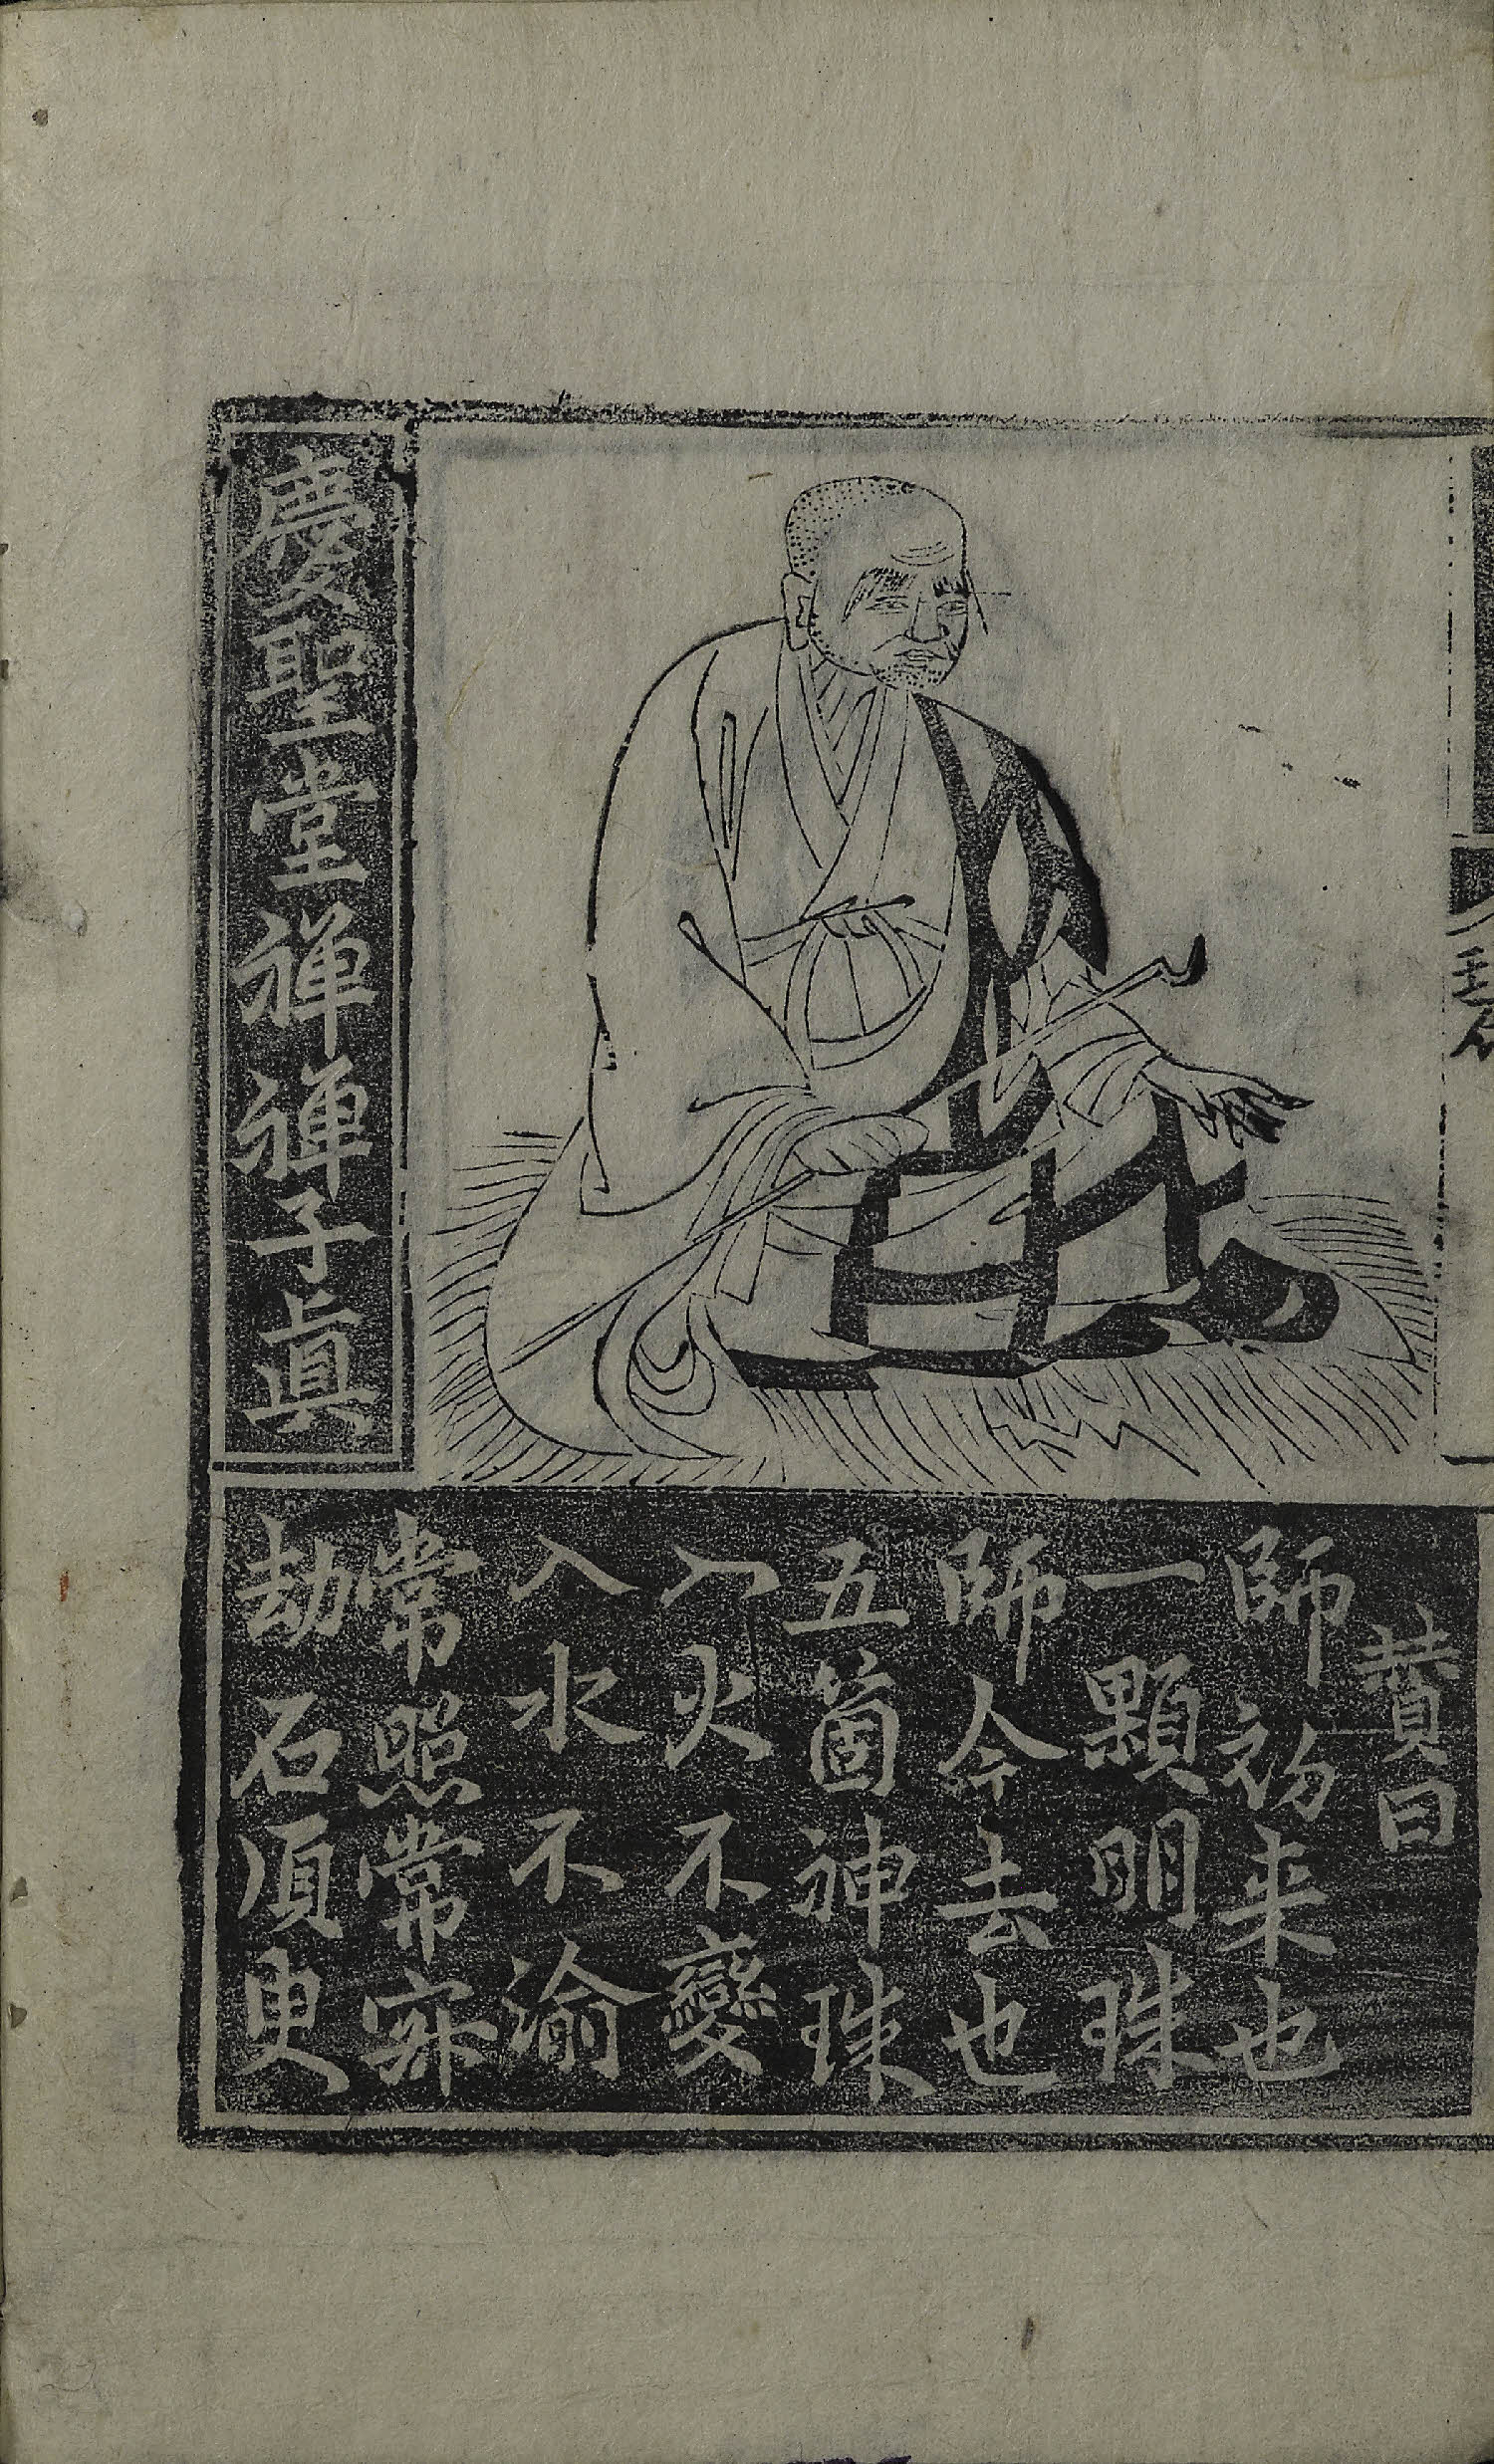 慶聖堂禪禪子眞
賛曰
師初来也
一顆明珠
師今去也
五箇神珠
入火不變
入水不渝
常照常寂
劫石須臾